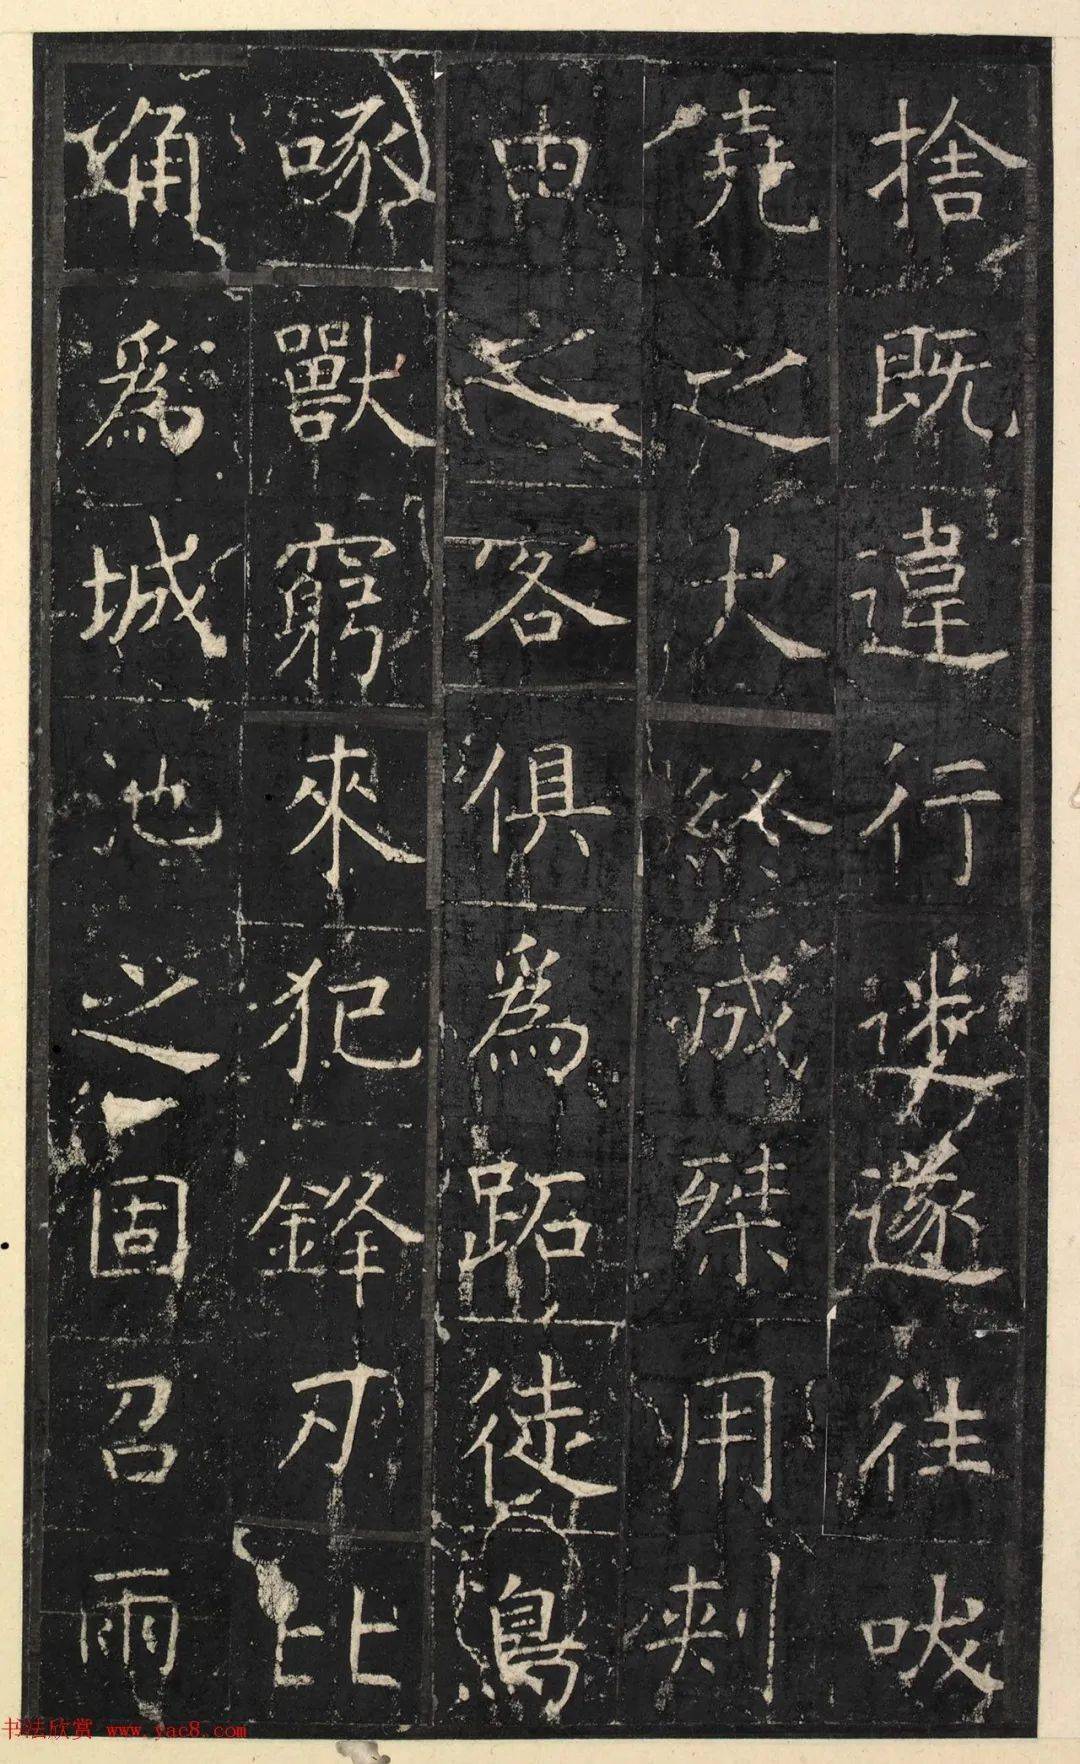 捨既違行迷遂往吠
堯之犬終成桀用刺
由之客俱爲跖徒鳥
啄獸窮來犯鋒刃比
爲城池之固召雨
书法欣赏 www.yac8.com